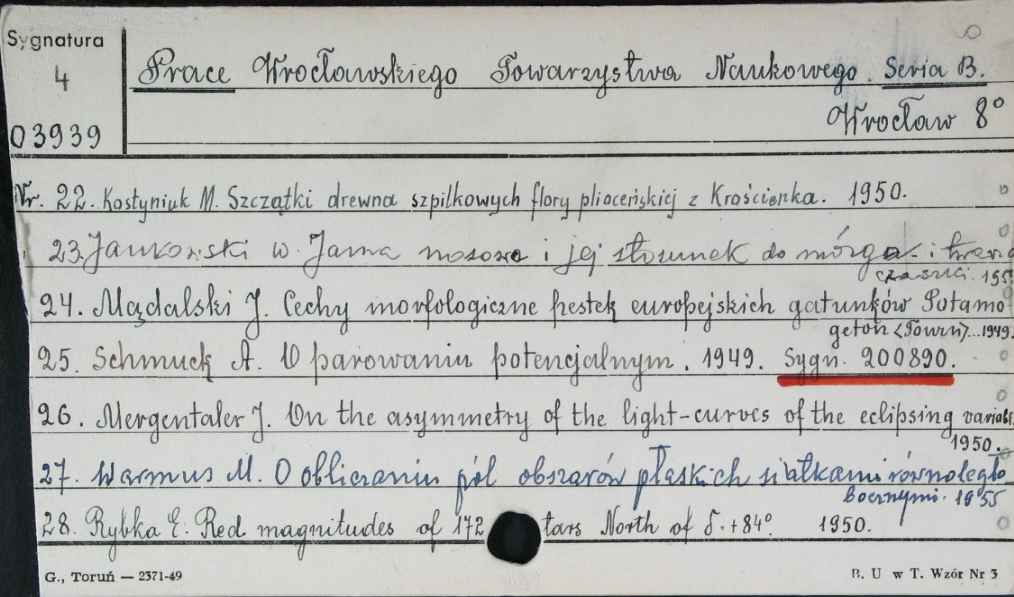 Sygnatura
4
03939
Prace Wrocławskiego Towarzystwa Naukowego. Seria B.
Wrocław 8°
Nr. 22. Kostyniuk M. Szczątki drewna szpilkowych flory plioceńskiej z Krościenka. 1950.
23. Jankowski W. Jama nosowa i jej stosunek do mózgo- i
czaszki. 195
24. Mądalski J. Cechy morfologiczne pestek europejskich gatunków Potamo
geton <Tourn>...1949.
25. Schmuck A. O parowaniu potencjalnym. 1949. Sygn. 200890.
26. Mergentaler J. On the asymmetry of the light-curves of the eclipsing variabl.
1950.
27. Warmus M. O obliczaniu pól obszarów płaskich siatkami równoległo
bocznymi. 1955
28. Rybka E. Red magnitudes of 172 tars North of δ. +84°. 1950.
G., Toruń — 2371-49
B. U w T. Wzór Nr 3